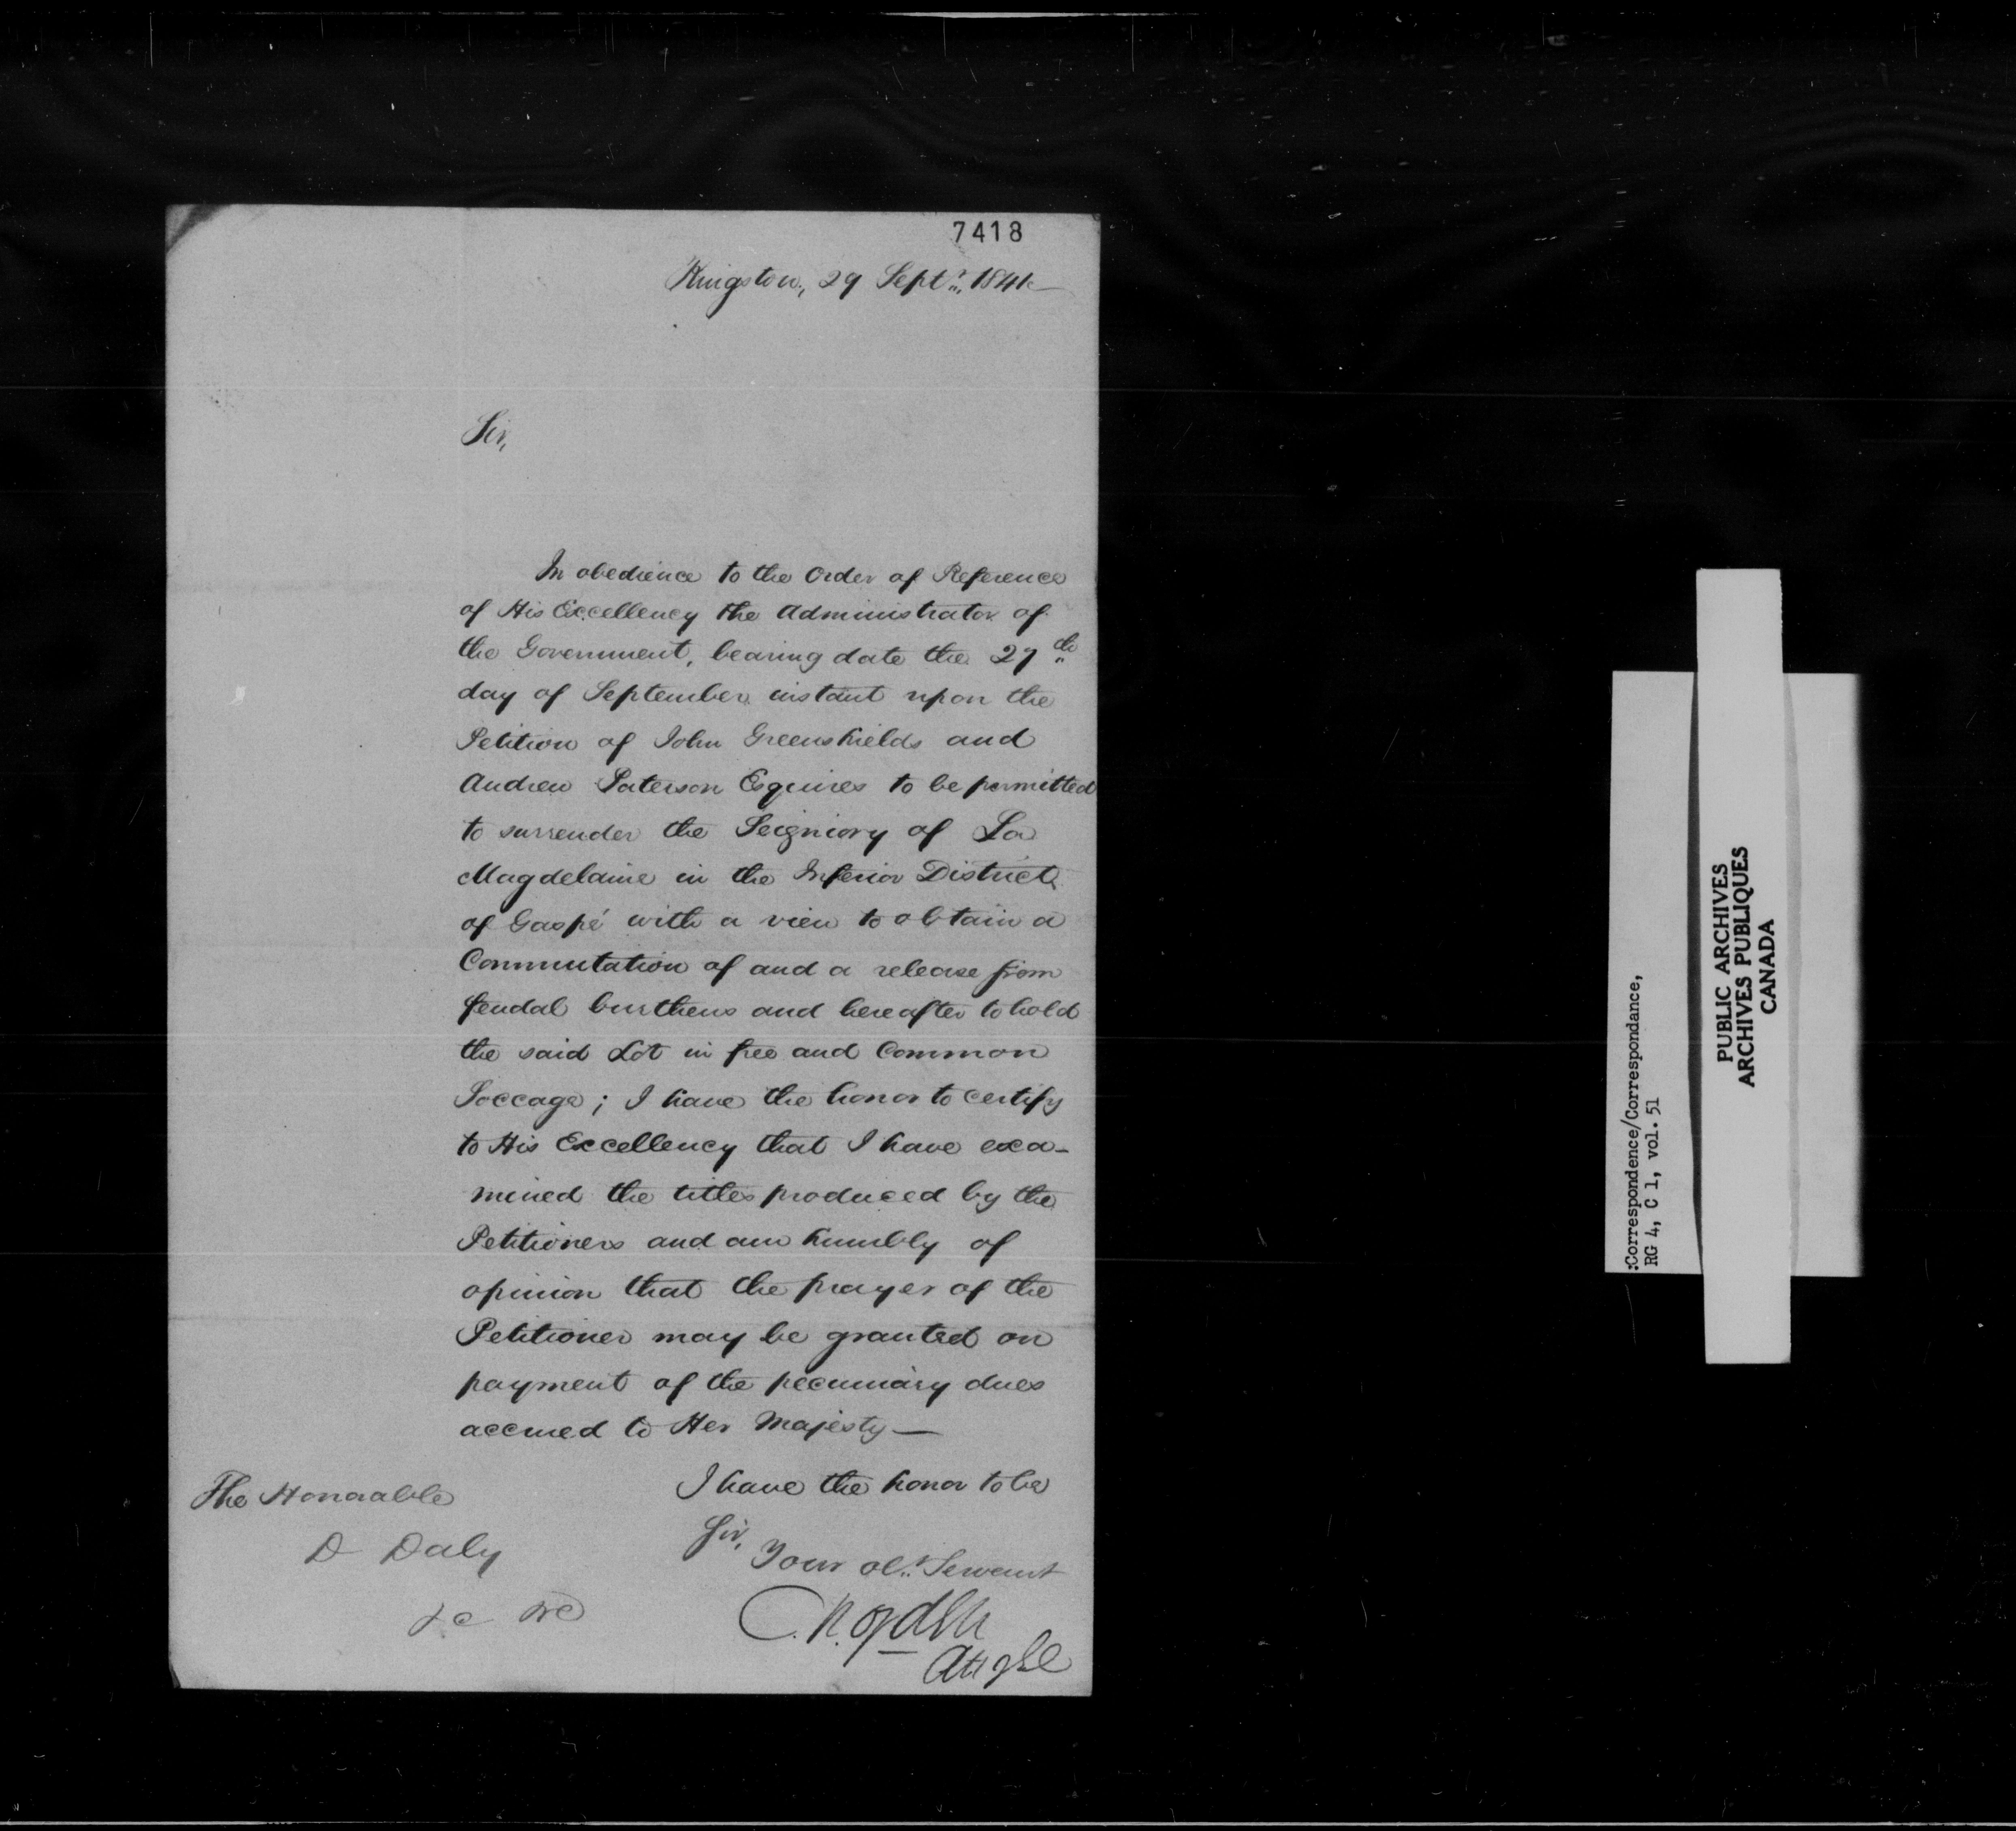 7418
Kingston, 29 Septr., 1841
Sir,
In obedience to the Order of Reference
of His Excellency the Administrator of
the Government, bearing date the 27th
day of September instant upon the
Petition of John Greenshields and
Andrew Paterson Esquires to be permitted
to surrender the Seigniory of La
Magdelaine in the Inferior District
of Gaspé with a view to obtain a
Commutation of and a release from
feudal burthens and hereafter to hold
the said Lot in free and Common
Soccage; I have the honor to certify
to His Excellency that I have exa-
mined the titles produced by the
Petitioners and am humbly of
opinion that the prayer of the
Petitioner may be granted on
payment of the pecuniary dues
accrued to Her Majesty —
I have the honor to be
Sir,
Your obt. Servant
C. R. Ogden
Att Gl
The Honorable
D Daly
&c &c
:Correspondence/Correspondance,
RG 4, C 1, vol. 51
PUBLIC ARCHIVES
ARCHIVES PUBLIQUES
CANADA